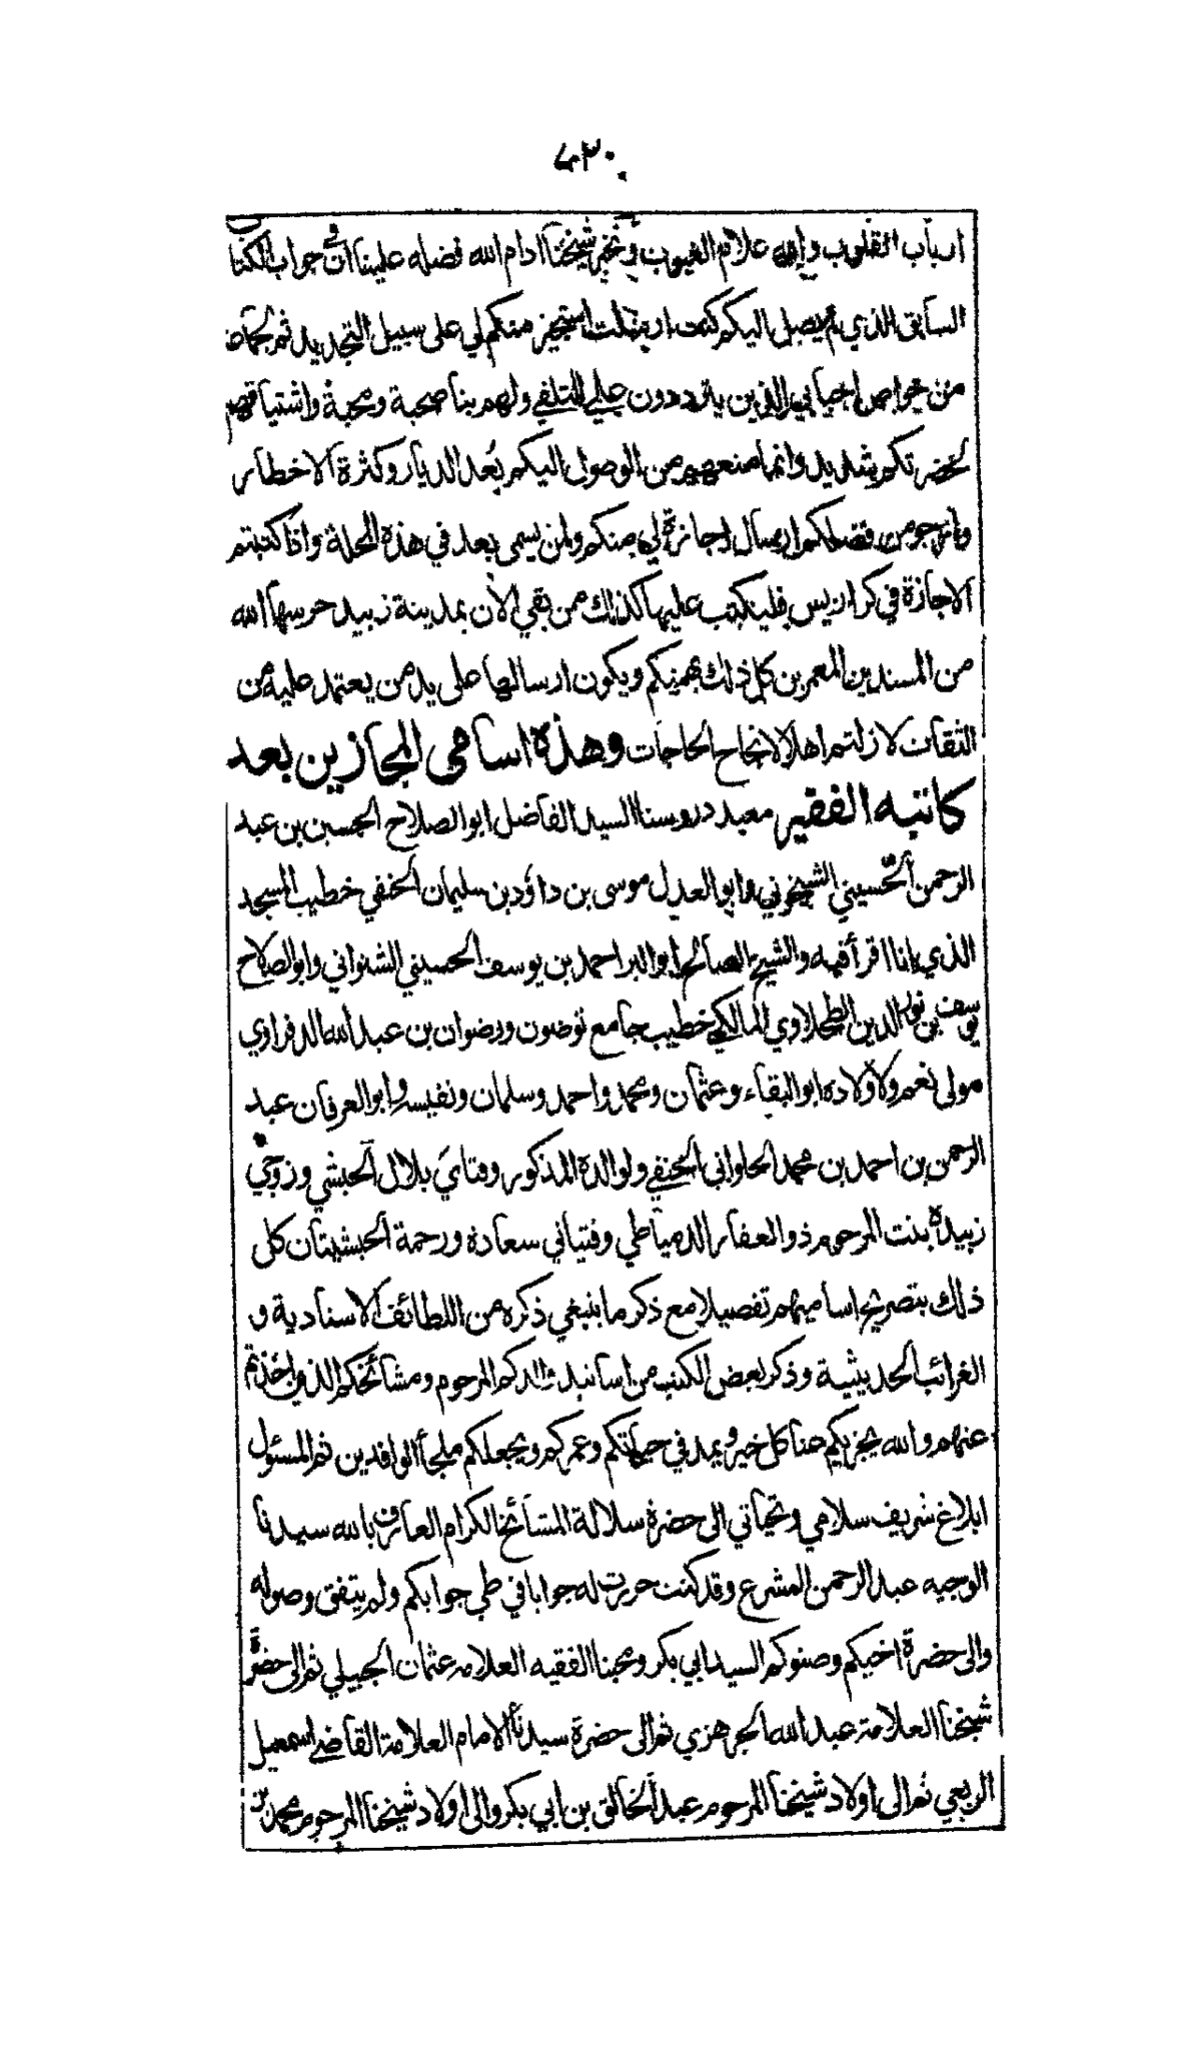 ٤٣٠
ارباب القلوب والله علام الغيوب ونخبر شيخنا ادام الله فضله علينا ان في جواب الكتاب
السابق الذي لم يصل اليكم كنت ارسلت استجيز منكم لي على سبيل التجديد ثم لجماعة
من خواص احبابي الذين يترددون علي للتلقي ولهم بنا صحبة ومحبة واشتياقهم
لحضرتكم شديد وانما منعهم من الوصول اليكم بعد الديار وكثرة الاخطار
وارجو من فضلكم ارسال اجازة لي منكم ولمن يسمى بعد في هذه الجملة واذا كتبتم
الاجازة في كراريس فليكتب عليها كذلك من بقي الآن بمدينة زبيد حرسها الله
من المسندين المعمرين كل ذلك بهمتكم ويكون ارسالها على يد من يعتمد عليه من
الثقات لا زلتم اهلا لانجاح الحاجات وهذه اسامي المجازين بعد
كاتبه الفقير معيد دروسنا السيد الفاضل ابو الصلاح الحسين بن عبد
الرحمن الحسيني الشيخوني وابو العدل موسى بن داؤد بن سليمان الحنفي خطيب المسجد
الذي انا اقرأ فيه والشيخ الصالح ابو البر احمد بن يوسف الحسيني الشنواني وابو الصلاح
يوسف بن نور الدين الطحلاوي المالكي خطيب جامع توضون ورضوان بن عبد الله الدفراوي
مولى نعم ولاولاده ابو البقاء وعثمان ومحمد واحمد وسلمان ونفيسه وابو العرفان عبد
الرحمن بن احمد بن محمد الحلواني الحنفي ولوالده المذكور وفتاي بلال الحبشي وزوجتي
زبيدة بنت المرحوم ذو الفقار الدمياطي وفتياتي سعادة ورحمة الحبشيتان كل
ذلك بتصريح اساميهم تفصيلا مع ذكر ما ينبغي ذكره من اللطائف الاسنادية و
الغرائب الحديثية وذكر بعض الكتب من اسانيد والدكم المرحوم ومشائخكم الذين اخذتم
عنهم والله يجزيكم عنا كل خير ويمد في حياتكم وعمركم ويجعلكم ملجأ الوافدين ثم المسئول
ابلاغ شريف سلامي وتحياتي الى حضرة سلالة المشائخ الكرام العارف بالله سيدنا
الوجيه عبد الرحمن المشرع وقد كنت حررت له جوابا في طي جوابكم ولم يتفق وصوله
والى حضرة اخيكم وصنوكم السيد ابي بكر ومحبنا الفقيه العلامه عثمان الجبيلي ثم الى حضرة
شيخنا العلامة عبد الله الجرهزي ثم الى حضرة سيدنا الامام العلامة القاضي اسمعيل
الربعي ثم الى اولاد شيخنا المرحوم عبد الخالق بن ابي بكر والى اولاد شيخنا المرحوم محمد بن